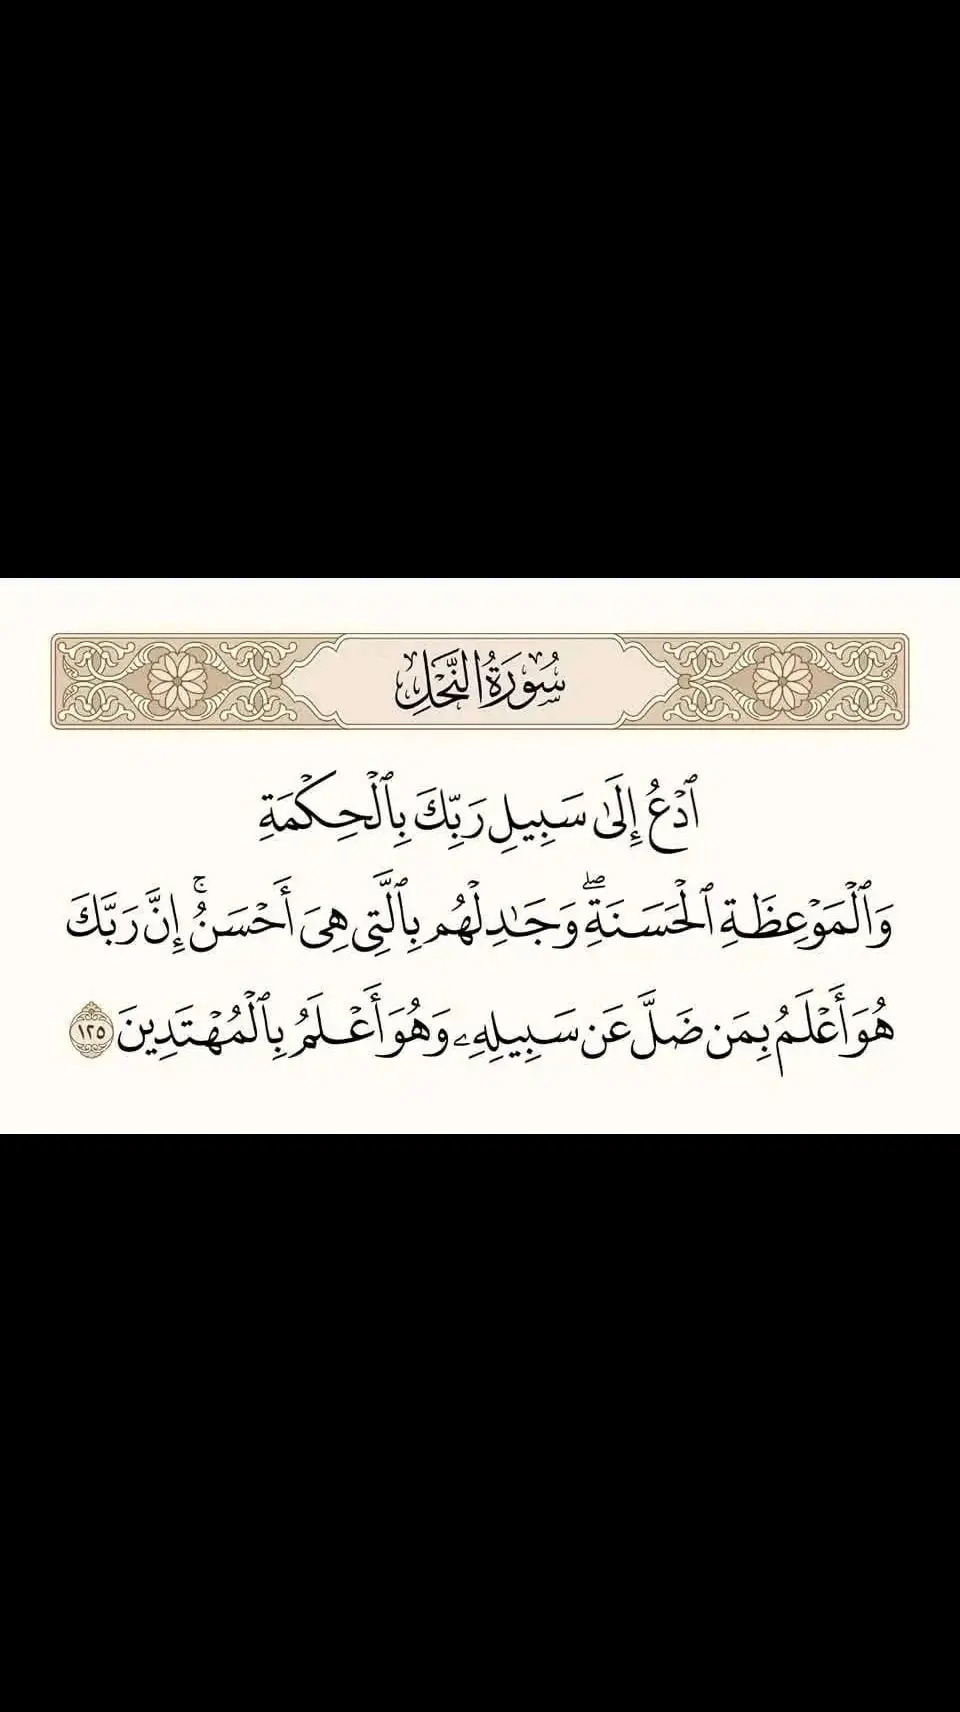 سُورَةُ النَّحْلِ
ٱدْعُ إِلَىٰ سَبِيلِ رَبِّكَ بِٱلْحِكْمَةِ
وَٱلْمَوْعِظَةِ ٱلْحَسَنَةِۖ وَجَـٰدِلْهُم بِٱلَّتِى هِىَ أَحْسَنُۚ إِنَّ رَبَّكَ
هُوَ أَعْلَمُ بِمَن ضَلَّ عَن سَبِيلِهِۦ وَهُوَ أَعْلَمُ بِٱلْمُهْتَدِينَ ١٢٥